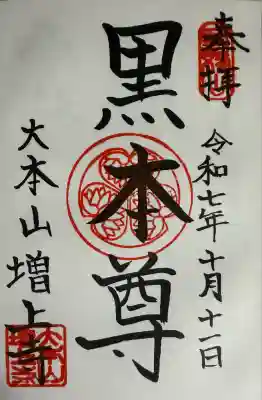 奉拝
令和七年十月十一日
黒本尊
大本山増上寺